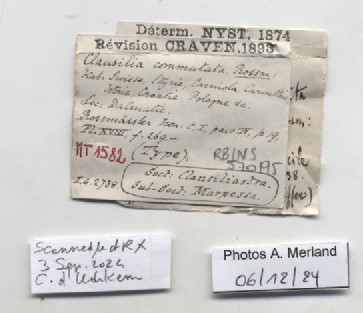 Déterm. NYST, 1874
Révision CRAVEN, 1893
Clausilia commutata Rossm:
Hab. Suisse, Styrie, Carniole, Carinthie
Istrie, Croatie, Pologne &c.
Loc. Dalmatie.
Rossmässler Icon. t. I, pars IV, p. 19,
Pl. XVIII f. 269.-
(Type).
MT 1582
RBINS
I.G. 2784
Sect: Clausiliastra.
Sub-Sect: Marpessa.
3 Sep. 2024
C. d'Udekem
Photos A. Merland
06/12/24